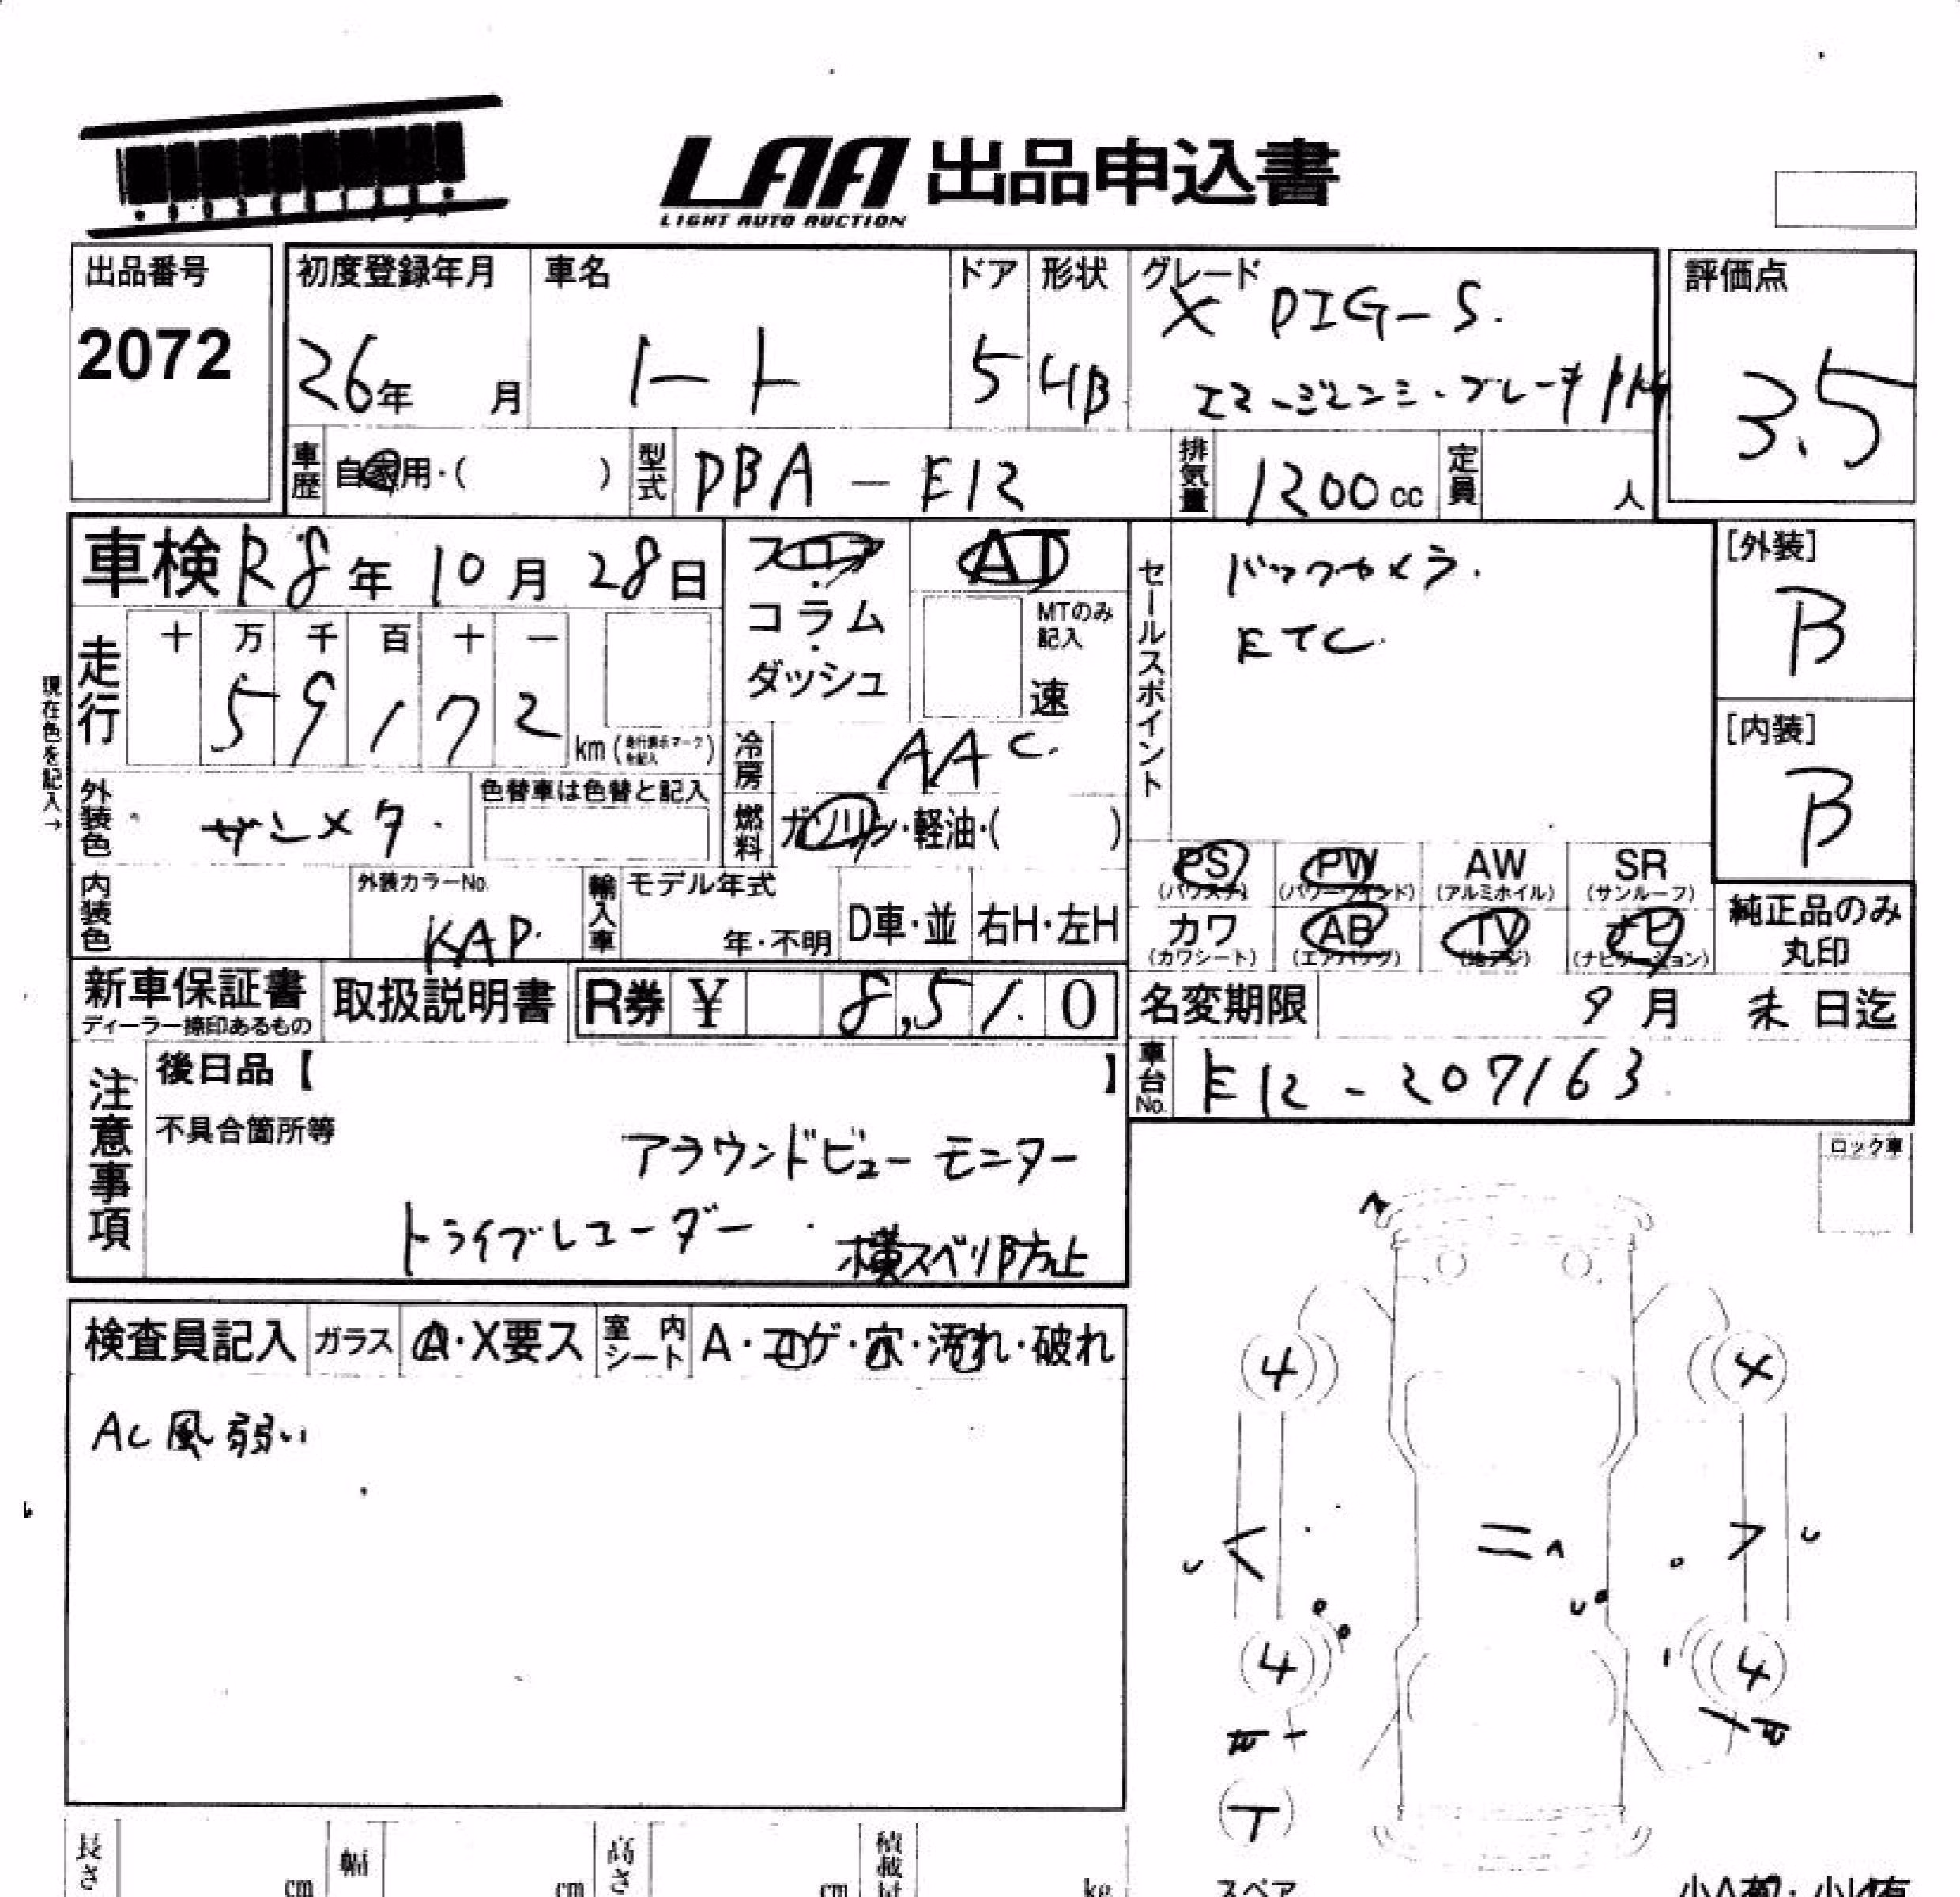 LAA 出品申込書
LIGHT AUTO AUCTION
出品番号
2072
初度登録年月
26年 月
車名
ノート
ドア
5
形状
HB
グレード
X DIG-S.
エマージェンシーブレーキ
評価点
3.5
車歴
自家用・( )
型式
DBA-E12
排気量
1200cc
定員
人
車検 R8年 10月 28日
フロア
・
コラム
・
ダッシュ
AT
MTのみ
記入
速
セールスポイント
バックカメラ.
ETC.
[外装]
B
[内装]
B
現在色を記入→
走行
十 万 千 百 十 一
5 9 1 7 2
km (走行表示マークを記入)
冷房
AAC.
外装色
ガンメタ.
色替車は色替と記入
燃料
ガソリン・軽油・( )
内装色
外装カラーNo.
KAD.
輸入車
モデル年式
年・不明
D車・並
右H・左H
PS
(パワステ)
PW
(パワーウインド)
AW
(アルミホイル)
SR
(サンルーフ)
カワ
(カワシート)
AB
(エアバッグ)
TV
(地デジ)
ナビ
(ナビゲーション)
純正品のみ
丸印
新車保証書
ディーラー捺印あるもの
取扱説明書
R券 ¥ 8,510
名変期限 9月 末日迄
車台No.
E12-207163
注意事項
後日品【 】
不具合箇所等
アラウンドビューモニター
ドライブレコーダー ・ 横スベリ防止
ロック車
検査員記入
ガラス
A・X要ス
室内シート
A・コゲ・穴・汚れ・破れ
AC風弱い
4
4
4
4
(T)
スペア
長さ
cm
幅
cm
高さ
cm
積載
kg